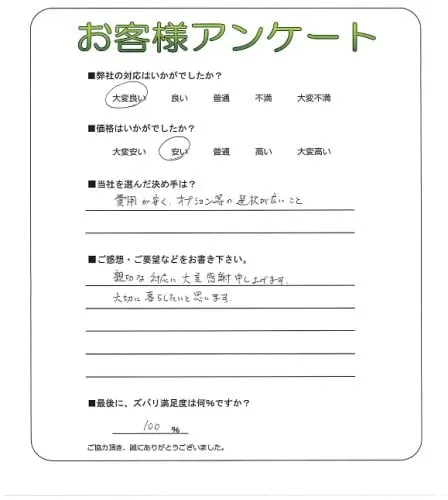 お客様アンケート
■弊社の対応はいかがでしたか？
大変良い 良い 普通 不満 大変不満
■価格はいかがでしたか？
大変安い 安い 普通 高い 大変高い
■当社を選んだ決め手は？
費用が安く、オプション等の選択が広いこと
■ご感想・ご要望などをお書き下さい。
親切な対応に大変感謝申し上げます。
大切に暮らしたいと思います.
■最後に、ズバリ満足度は何％ですか？
100 ％
ご協力頂き、誠にありがとうございました。